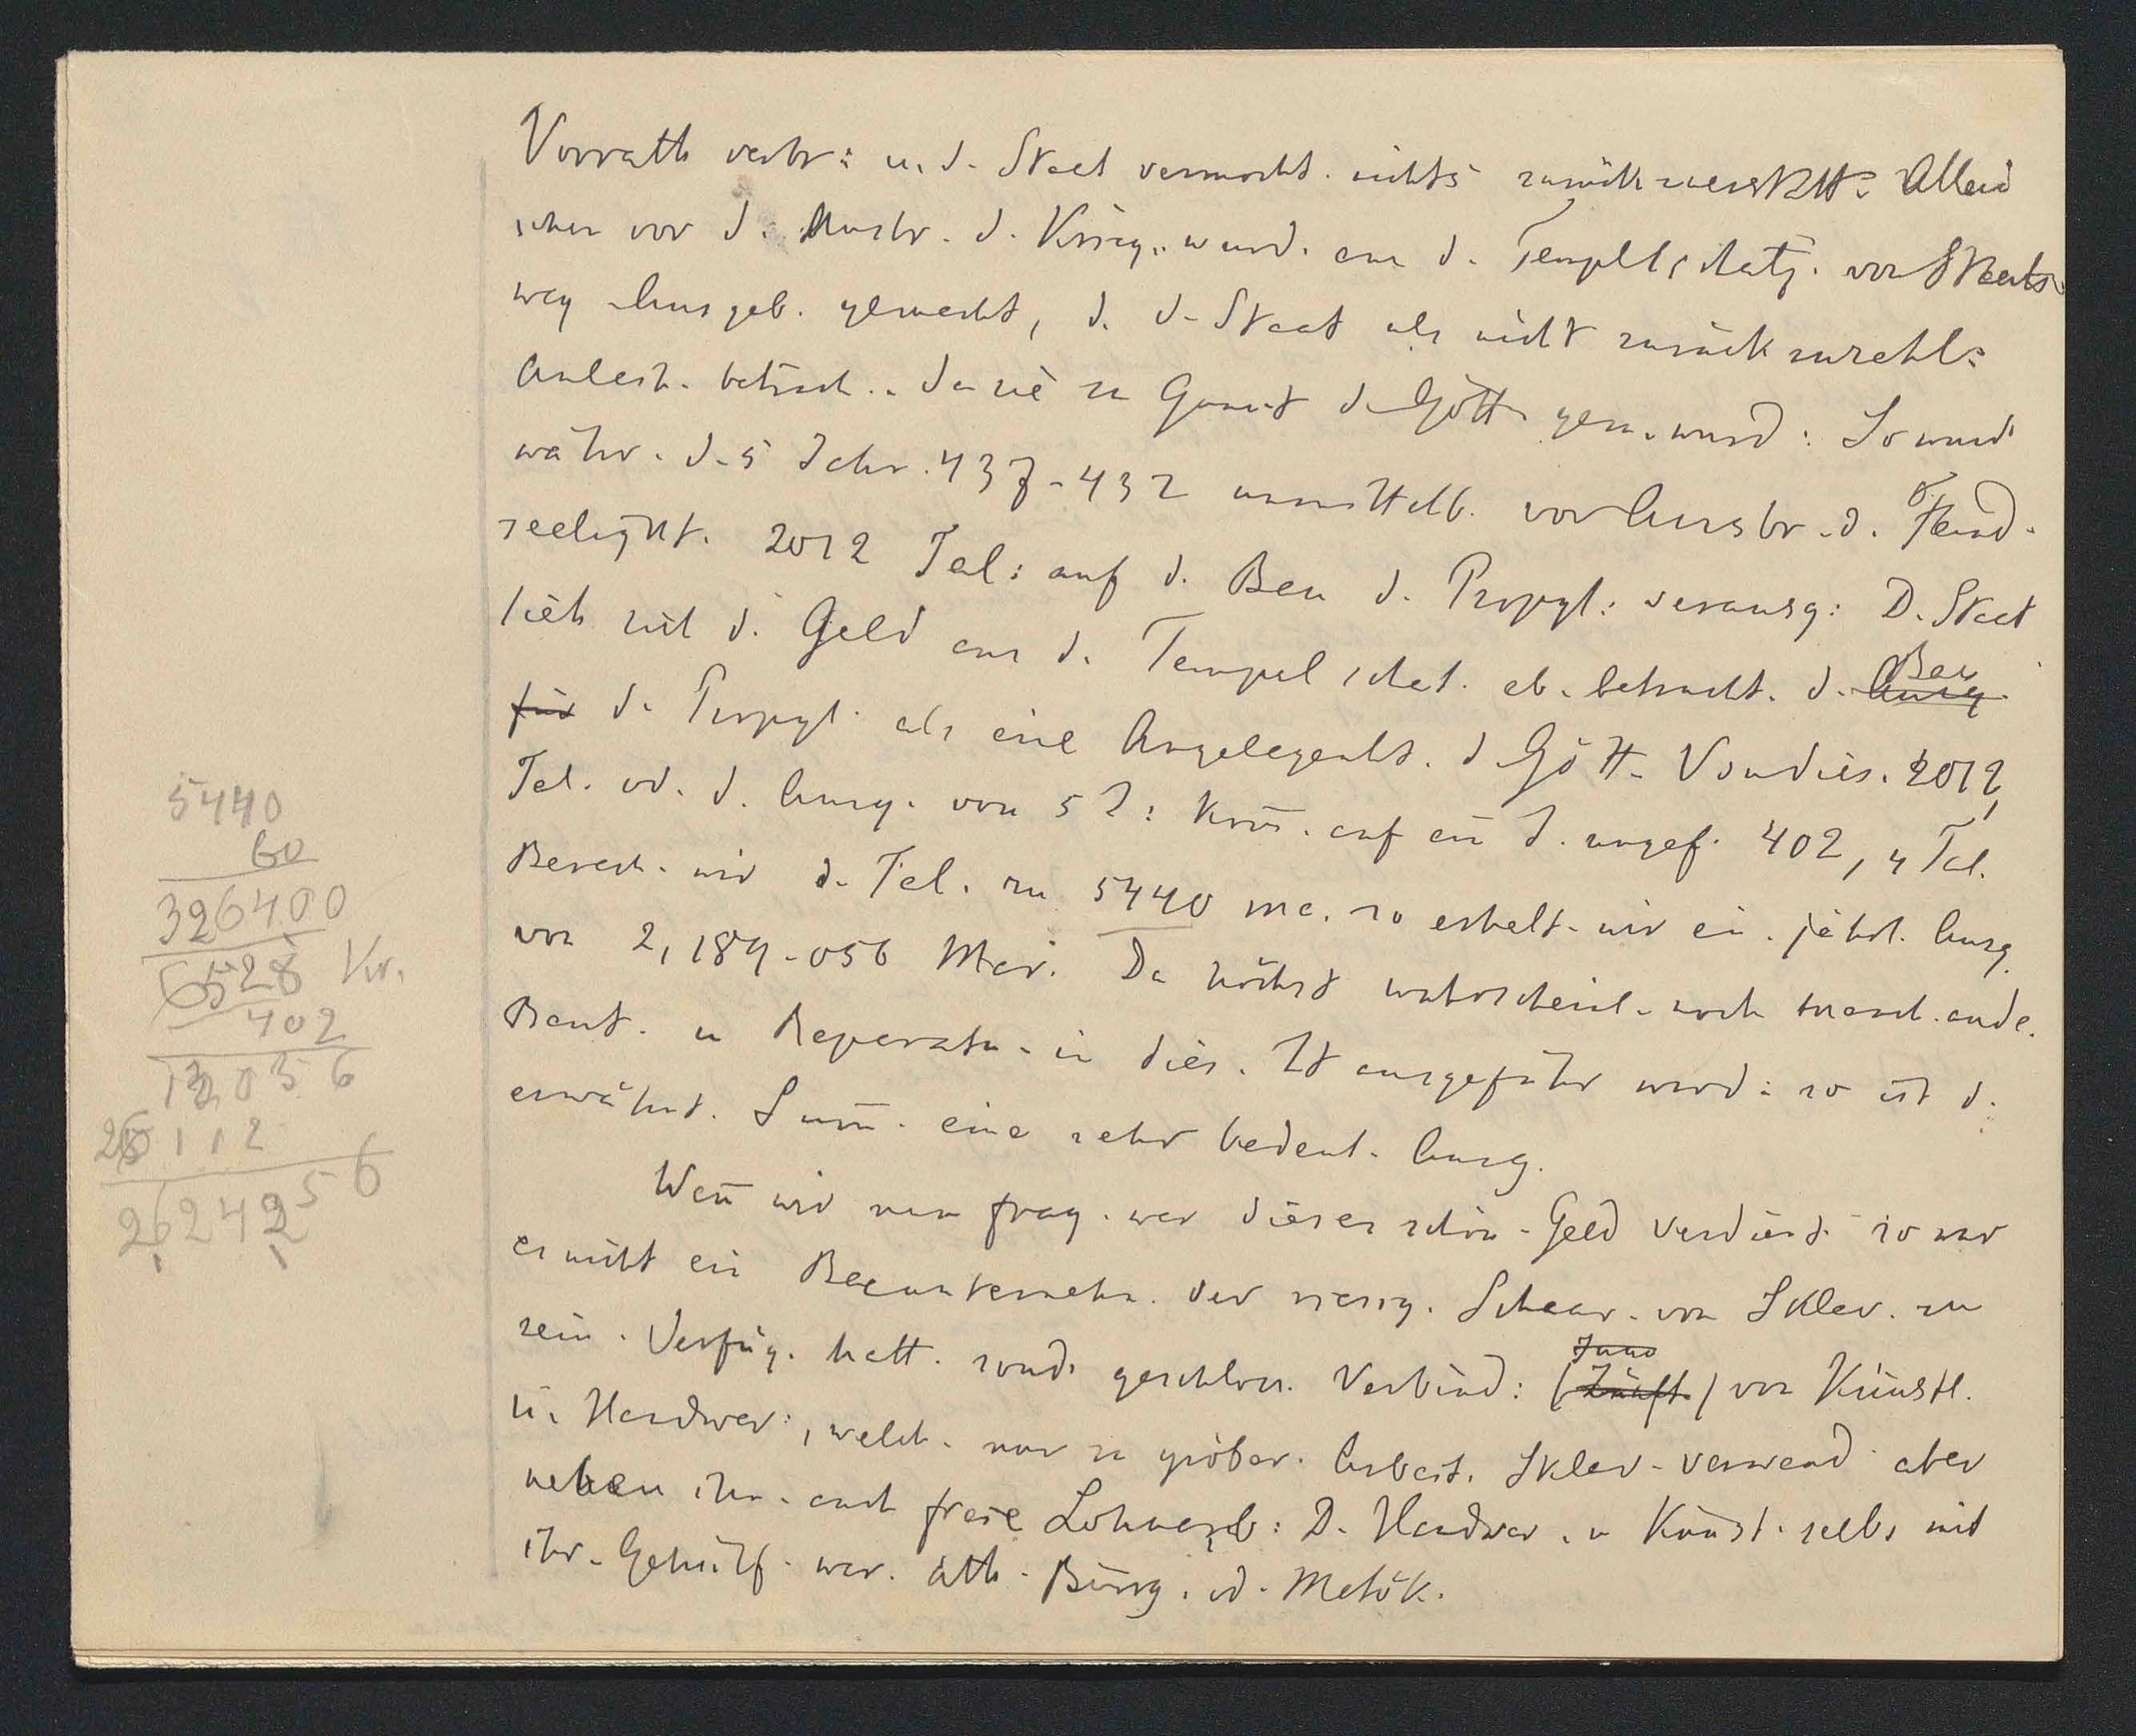 Vorrath verbr: u. d. Staat vermocht. nichts zurückzuerstatt: Allein
schon vor d. Ausbr. d. Krieg. wurd. aus d. Tempelschatz. von Staats
weg Ausgab. gemacht, d. d. Staat als nicht zurückzuzahl:
Anleih. betrach.. da sie zu Gunst d Gött. gem. wurd: So wurd
währ. d. 5 Jahr. 437-432 unmittelb. vor Ausbr. d. Feind.
seeligkt. 2012 Tal: auf d. Bau d. Propyl: verausg: D. Staat
sieh mit d. Geld aus d. Tempelschat. ab. betracht. d. Ausg Bau
für d. Propyl. als eine Angelegenht. d Gött. Von dies. 2012
Tal. od. d. Ausg. von 5 J: kom̄. auf ein J. ungef. 402,4 Tal.
Berech. wir d. Tal. zu 5440 ma. so erhalt. wir ein. jährl. Ausg.
von 2,189.056 Mar. Da höchst wahrscheinl. noch manch. ande.
Baut. u Reperatu. in dies. Zt ausgeführ word: so ist d.
erwähnt. Sum̄. eine sehr bedeut. Ausg.
Wen̄ wir nun frag. wer dieses schön. Geld verdient. so war
es nicht ein Bauunternehm. der riesig. Schaar. von Sklav. zu
sein. Verfüg. hatt. sond. geschloss. Verbind: (Zünft.) von Künstl.
u. Handwer:, welch. nur zu gröber. Arbeit. Sklav. verwend aber
neben ihn. auch freie Lohnarb: D. Handwer. u Künst. selbs mit
ihr. Gehülf. war. ath. Bürg. od. Metök.
5440
60
326400
6528 Kr.
402
13056
26112
2624256